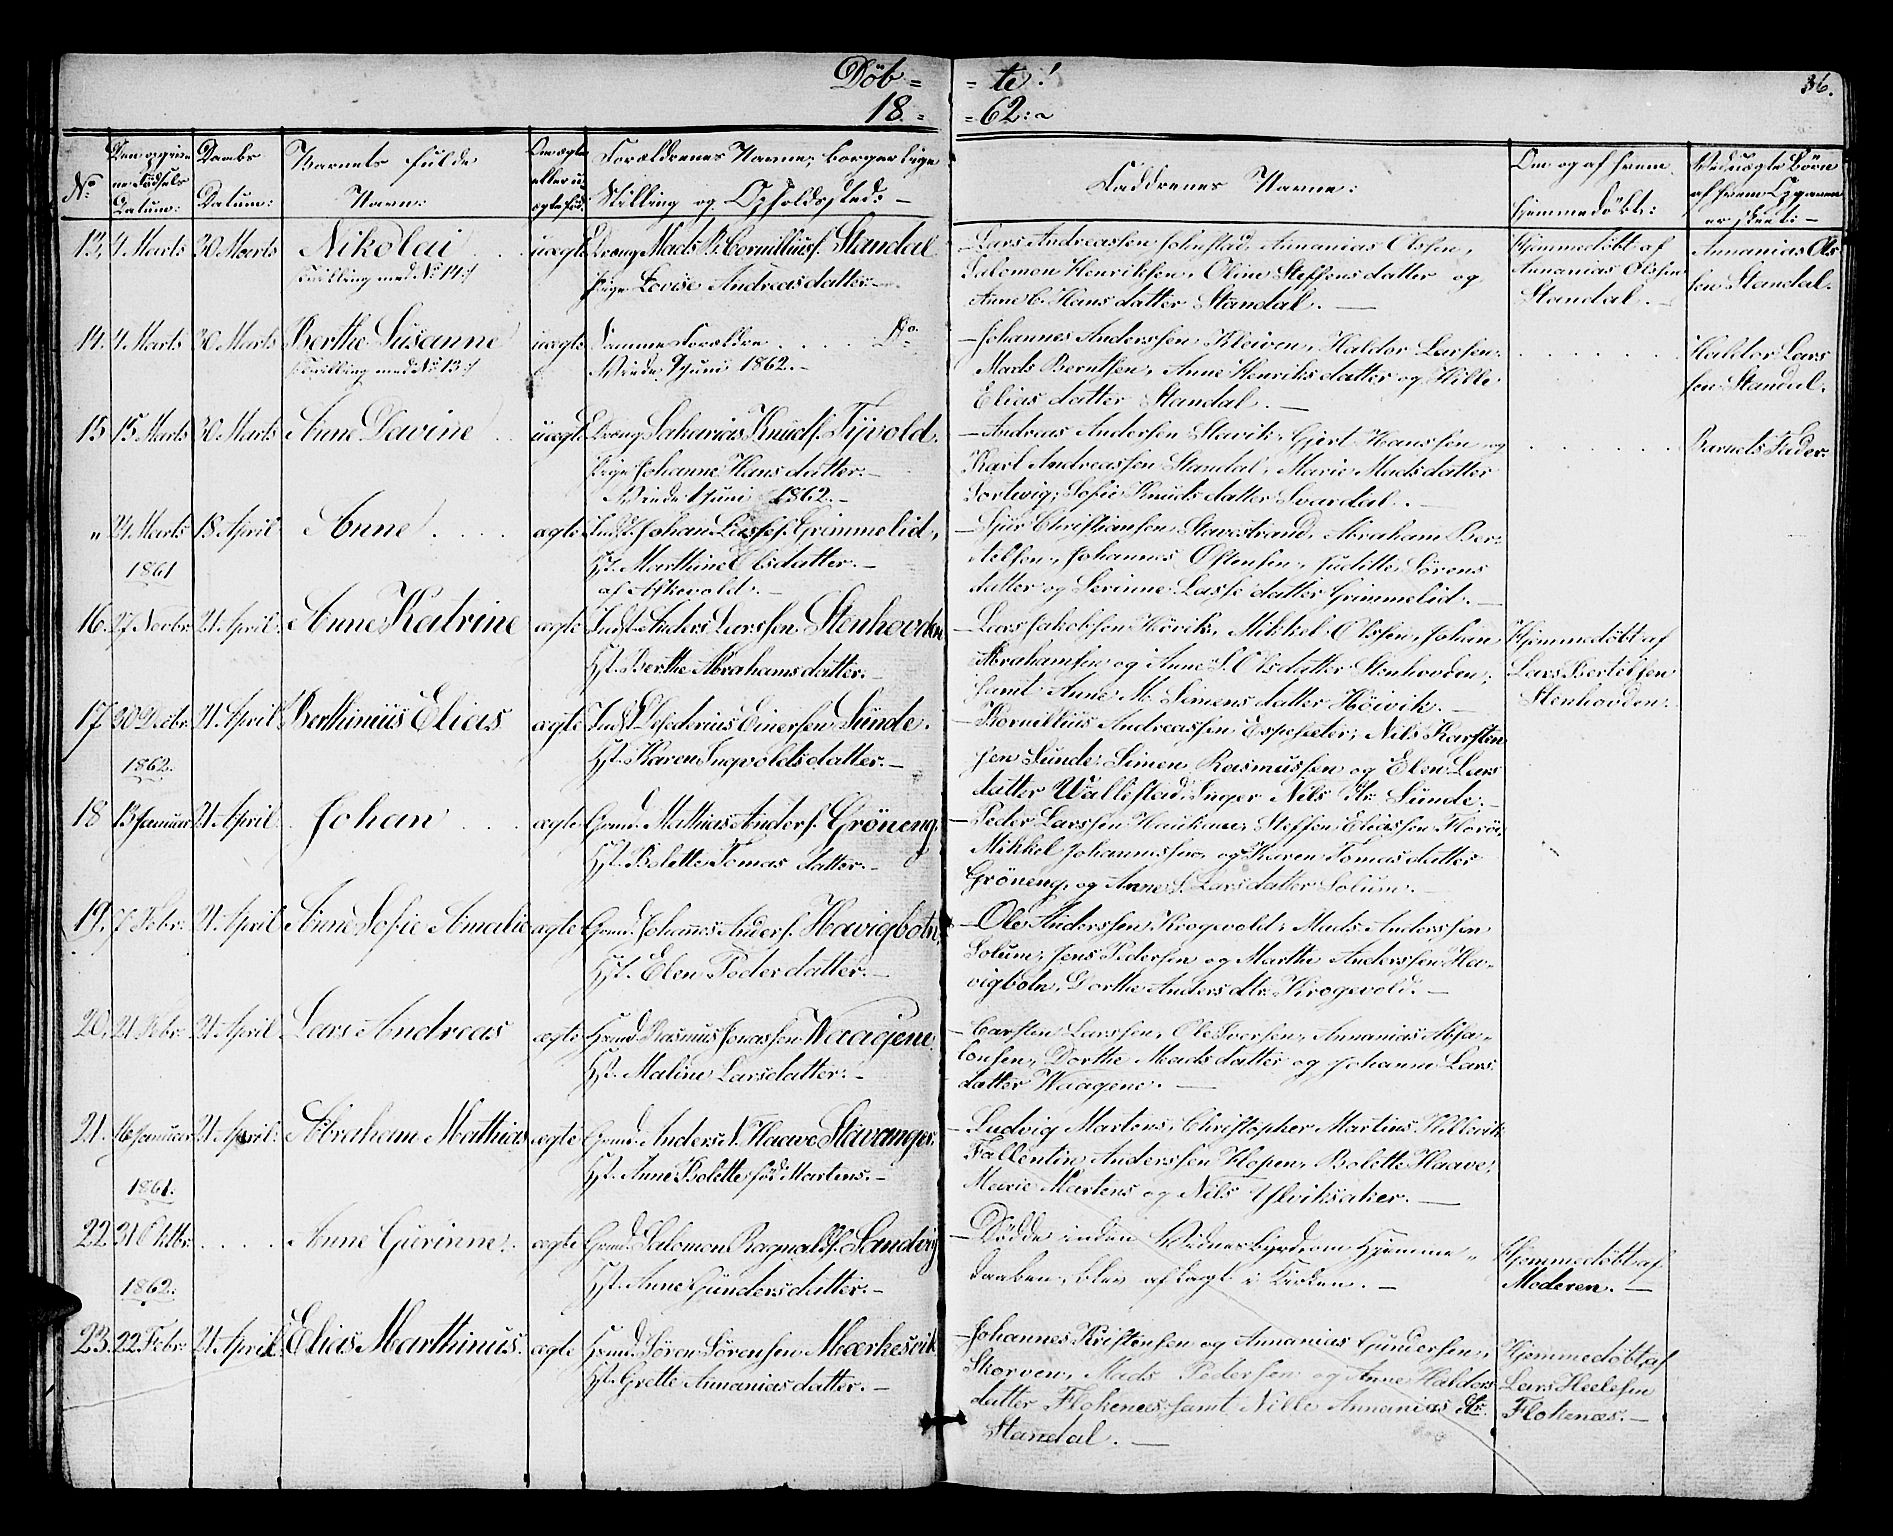 Døb=
18.=
=te!
=62:~
36.
No
Den opgivne Fødsels Datum:
Daabs Datum:
Barnets fulde
Navn:
Om ægte eller uægte fød:
Forældrenes Navne, borgerlige
Stilling og Opholdssted:-
Faddrenes Navne:
Om og af hvem
hjemmedøbt:
Ved uægte Børn af hvem Opgaven er skeet:-
13, 4 Marts 30 Marts Nikolai uægte Dreng Mads B. Cornilliusf. Standal
Tvilling med No 14./
Pige Lovise Andreasdatter-
-Lars Andreassen Annanias Olssen,
Salomon Henriksen, Oline Steffensdatter og
Anne C. Hansdatter Standal.-
Hjemmedøbt af
Annanias Olssen
Standal.
Annanias Ols
sen Standal.
14. 4 Marts 30 Marts Berthe Susanne uægte Samme Forældre Do
Tvilling med No 13./
Juni 1862.-
-Johannes Anderssen Kleiven, Haldor Larsen,
Mads Berntsen, Anne Henriksdatter og Nille
Eliasdatter Standal.-
Haldor Lars
sen Standal.
15 15 Marts 30 Marts Anne Davine uægte Dreng Sakarias Knudf. Tyvold.
Pige Johanne Hansdatter.-
Juni 1862.-
-Andreas Andersen Stavik, Gjert Hanssen og
Karl Andreassen Standal, Marie Madsdatter
Sortevig, Sofie Knudsdatter Svardal.-
Barnets Fader
" 24 Marts 18 April Anne ægte Indst. Johan Lassef. Grimmelid,
Hst. Marthine Olsdatter.-
af Askevold.-
-Sjur Christiansen Stavestrand, Abraham Ber-
telsen, Johannes Østensen, Juditte Sørens
datter og Serinne Lassedatter Grimmelid.-
1861
16. 27 Novbr. 21 April Anne Katrine ægte Indst. Anders Larssen Stenhovden
Hst. Berthe Abrahamsdatter.-
-Lars Jakobsen Høvik, Mikkel Olssen, Johan
Abrahamsen og Anne S. Olsdatter Stenhovden,
samt Anne M. Simensdatter Høivik.-
Hjemmedøbt af
Lars Bertelsen
Stenhovden.
17 30 Decbr. 21 April Berthinius Elias ægte Indst. Desiderius Einersen Sunde.
Hst. Karen Ingvoldsdatter.-
-Kornillius Andreassen Espeseter, Nils Karsten
sen Sunde, Simen Rasmussen og Elen Lars
datter Wallestad, Inger Nils Dtr. Sunde.-
1862.
18 13 Januar 21 April Johan ægte Grmd. Mathias Anders. Grøneng.
Hst. Bolette Tomasdatter.-
-Peder Larssen Haukaae, Steffen Eliassen Florø,
Mikkel Johannessen, og Karen Tomasdatter
Grøneng, og Anne S. Larsdatter Solum.-
19. 7 Febr. 21 April Anne Sofie Amalie ægte Grmd. Johannes Andersf. Havigbotn,
Hst. Elen Pederdatter.-
-Ole Anderssen, Krogevold, Mads Anderssen
Solum, Jens Pedersen og Marthe Anderssen Ha-
vigbotn, Dorthe Andersdtr. Krogevold.-
20. 21 Febr. 21 April Lars Andreas ægte Grmd. Rasmus Jonassen Waagene
Hst. Maline Larsdatter:-
-Carsten Larssen, Ole Iversen, Annanias Absa-
lonsen, Dorthe Madsdatter og Johanne Lars
datter Waagene.-
21. 16 Januar 21 April Abraham Mathias ægte Grmd. Anders N. Haave Stavanger.
Hst. Anne Bolette fød Martens.-
-Ludvig Martens, Christopher Martins Hillevik
Fallentin Anderssen Hopen, Bolette Haave,
Marie Martens og Nils Ytreviksaker.-
1861.
22 21 Oktbr. Anne Gurinne. ægte Grmd. Salomon Ragnaldf. Sandvig
Hst. Anne Gundersdatter.-
-Døde inden Vidnesbyrd om Hjemme-
daaben blev aftagt i Kirken.-
Hjemmedøbt af
Moderen.-
1862.
23. 22 Febr. 21 April Elias Marthinus. ægte Grmd. Søren Sørensen Mærkesvik
Hst. Grette Annaniasdatter.-
-Johannes Kristensen og Annanias Gundersen,
Skorven, Mads Pedersen og Anne Haldors
datter Flokenæs, samt Nille Annanias dtr.
Standal.-
Hjemmedøbt af
Lars Heelesen
Flokenæs.-